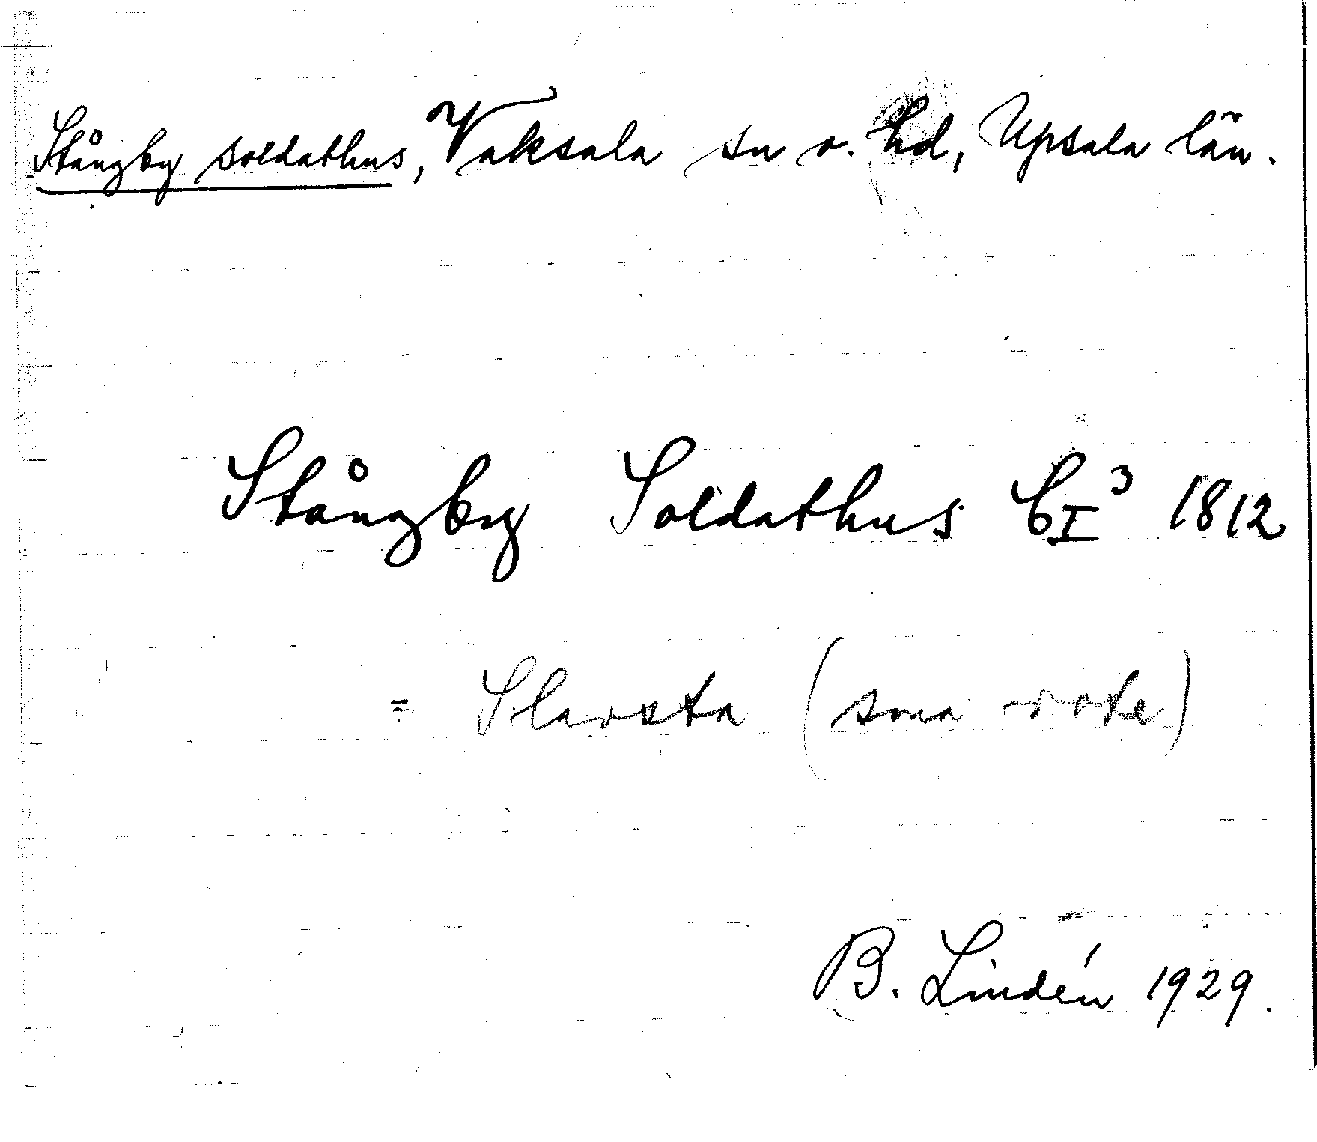 Stångby soldathus, Vaksala sn o. hd, Upsala län.
Stångby Soldathus C I³ 1812
= Slavsta (sma rote)
B. Lindén 1929.